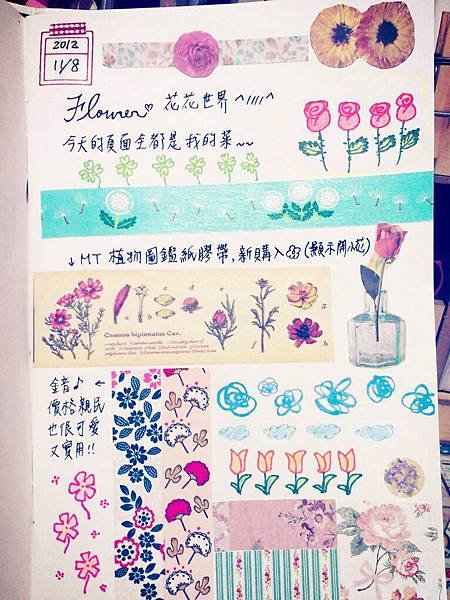 2012
11/8
Flower 花花世界 ^////^
今天的頁面全都是我的菜~~
↓MT 植物圖鑑紙膠帶,新購入 (顯示開心花)
a b c d e f g h
Cosmos bipinnatus Cav.
鐘音♪ ←
價格親民
也很可愛
又實用!!